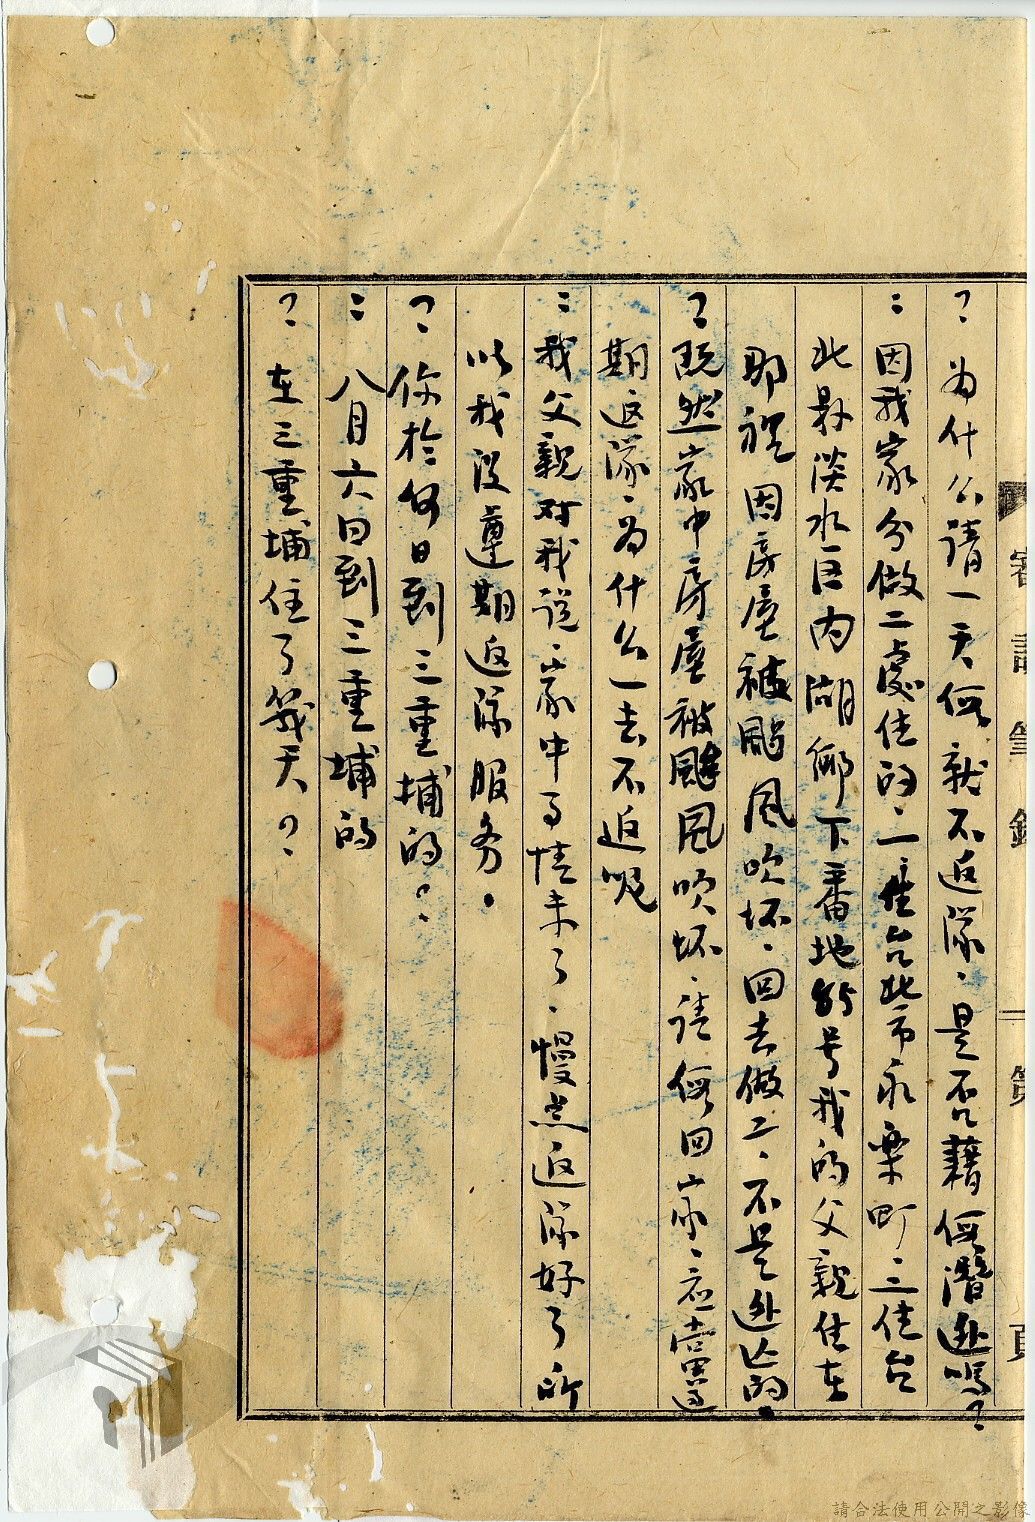 審訊筆錄 第 頁
？、为什么請一天假就不返隊、是否藉假潛逃嗎？
：因我家分做二處住的、一住台北市永樂町、二住台
北县淡水区内湖鄉下番地 号我的父親住在
那裡因房屋被颱风吹坏、回去做工、不是逃亡的。
？既然家中房屋被颱风吹坏、請假回家、应當遵
期返隊、为什么一去不返呢
：我父親对我説、家中事情未了、慢点返隊好了所
以我没遵期返隊服务。
？、你於何日到三重埔的？
：八月六日到三重埔的
？、在三重埔住了幾天？
請合法使用公開之影像